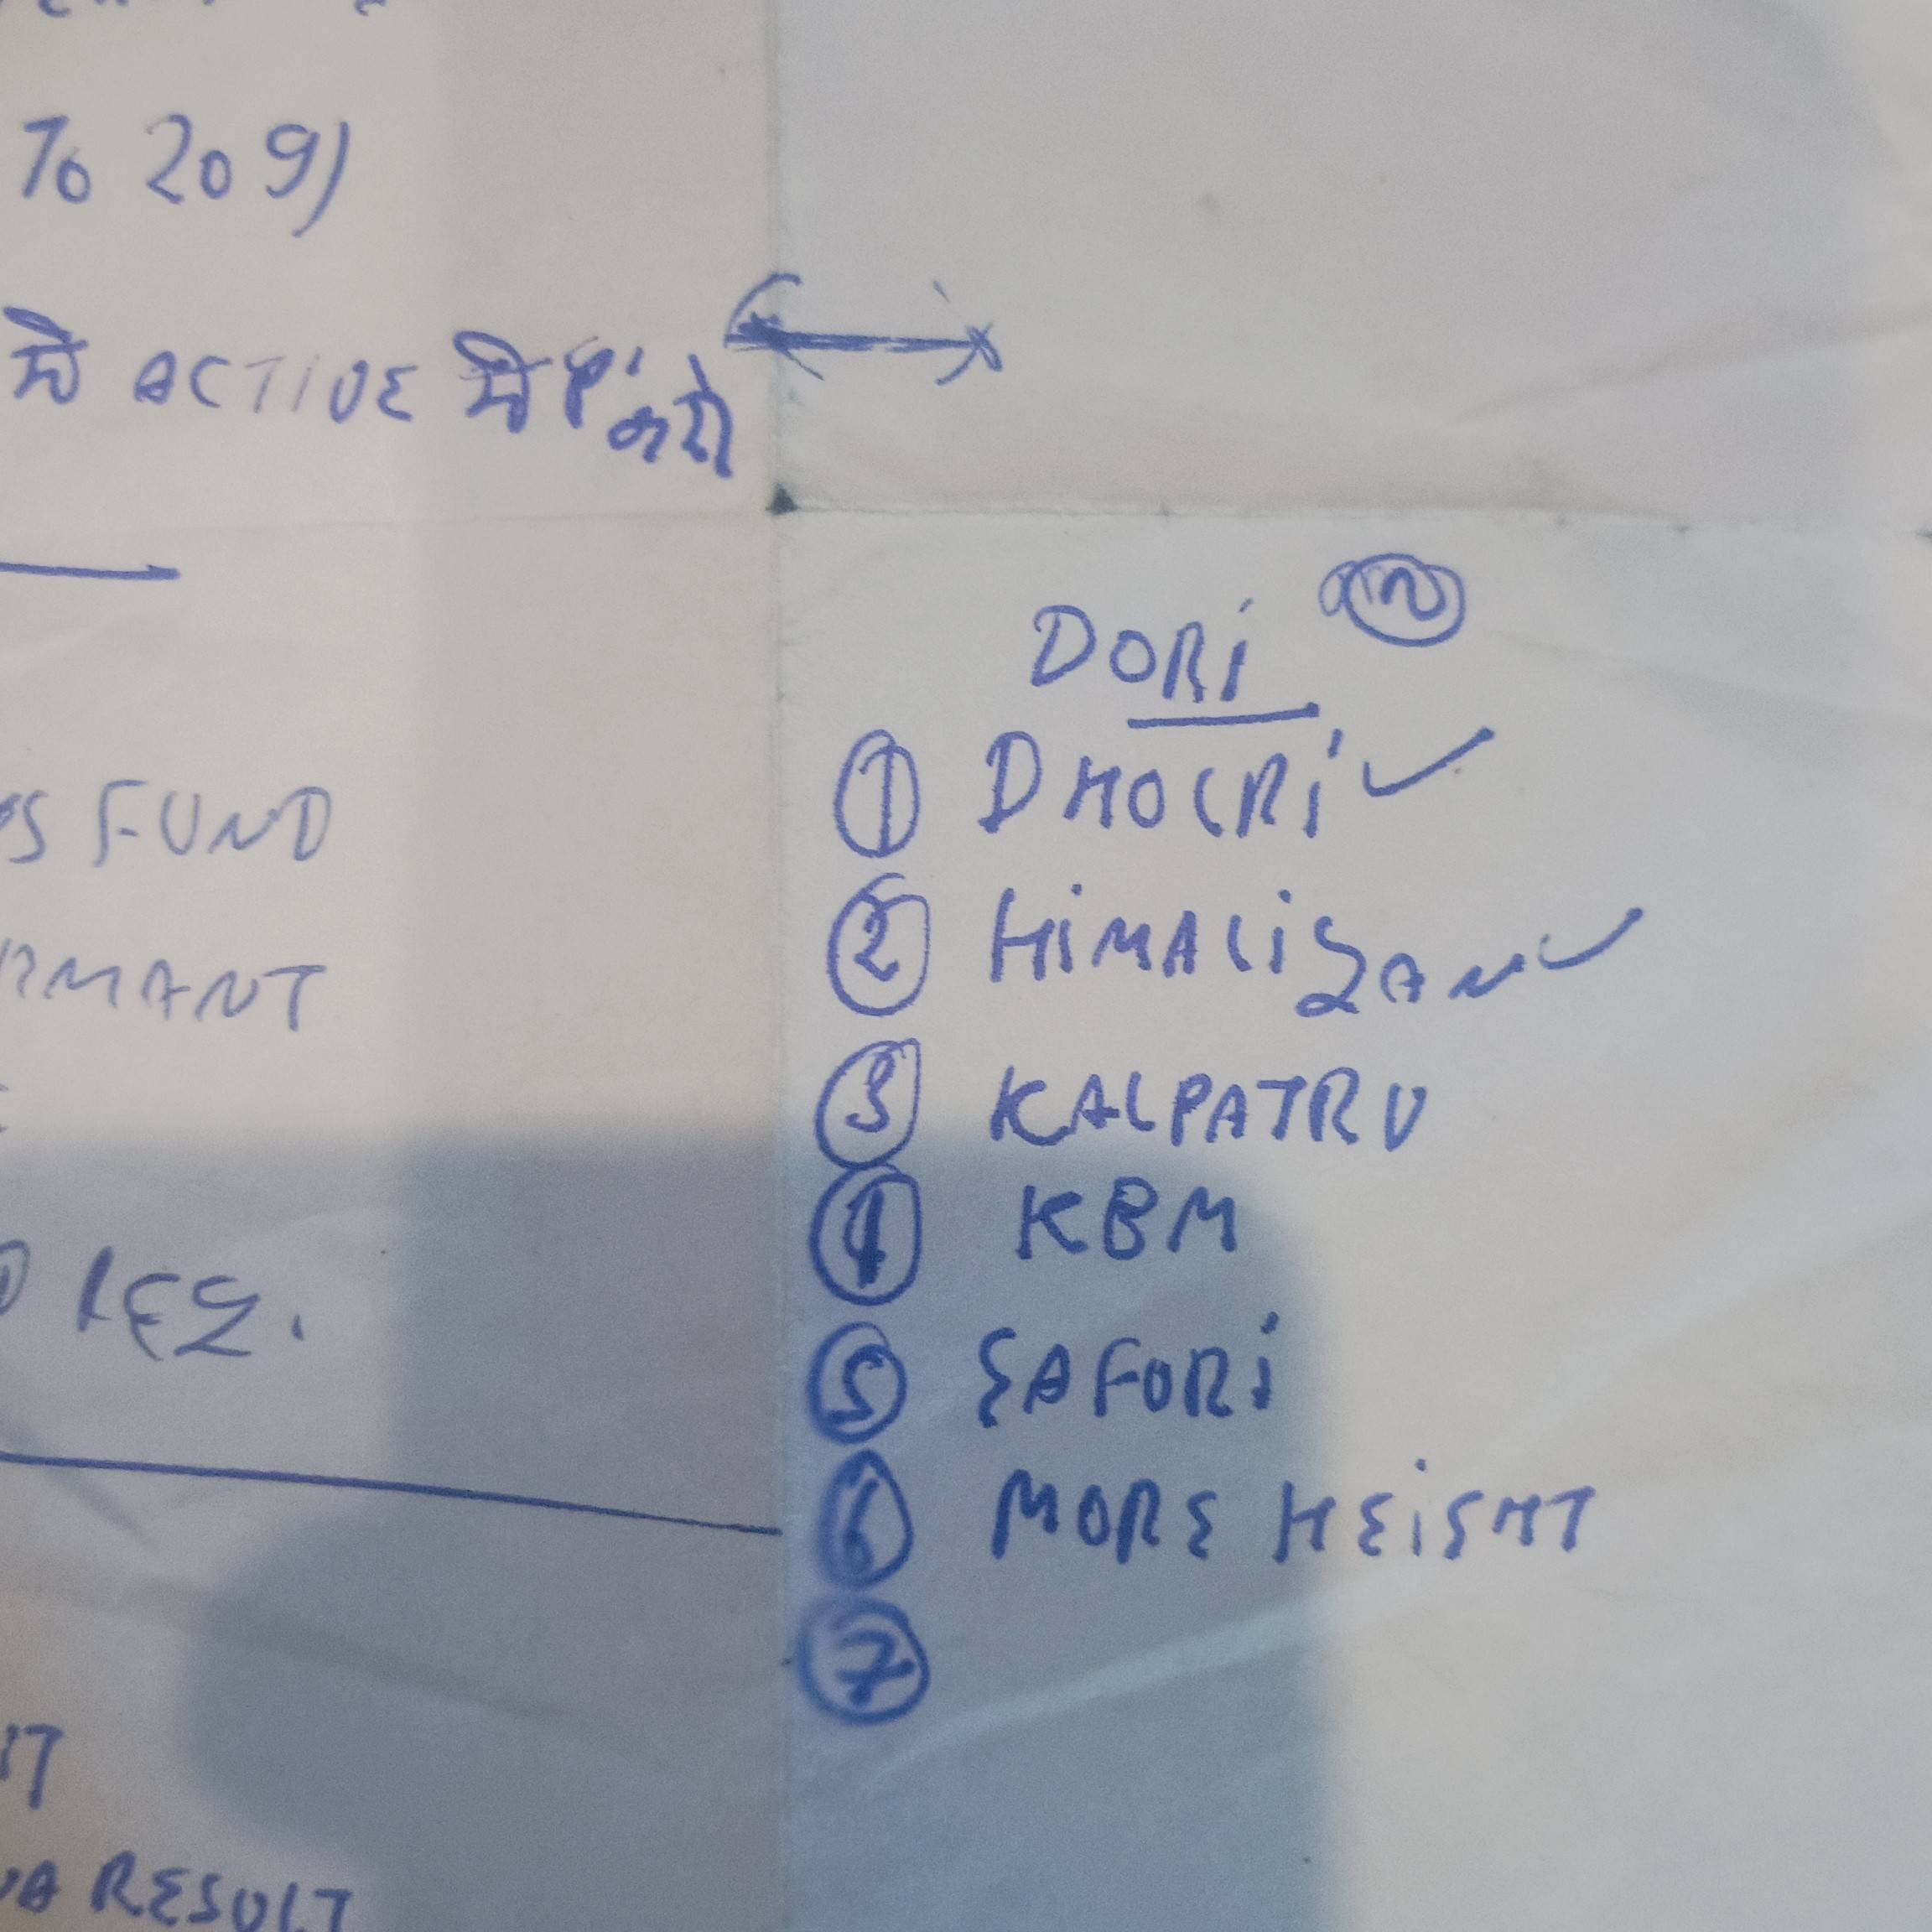 To 209)
में ACTIVE में P. करो
FUND
RMANT
REG.
IT
RESULT
DORi
① DHOLRi ✓
② HiMALiYAN ✓
③ KALPATRU
④ KBM
⑤ SAFORi
⑥ MORE HEiGHT
⑦